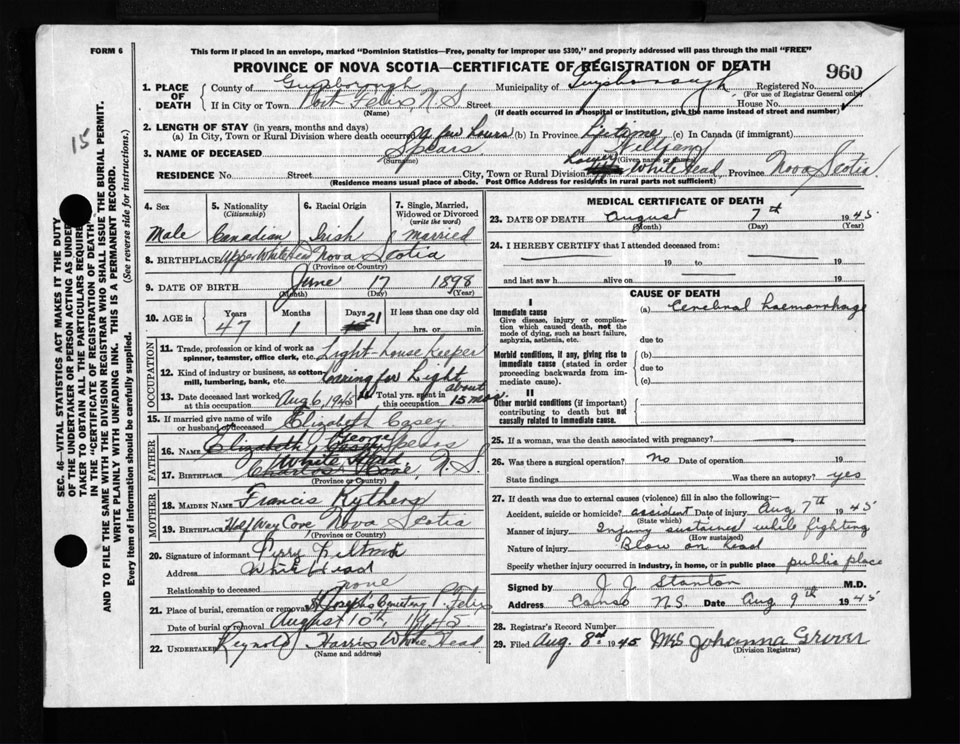 FORM 6
This form if placed in an envelope, marked "Dominion Statistics—Free, penalty for improper use $300," and properly addressed will pass through the mail "FREE"
PROVINCE OF NOVA SCOTIA—CERTIFICATE OF REGISTRATION OF DEATH
960
15
SEC. 46—VITAL STATISTICS ACT MAKES IT THE DUTY
OF THE UNDERTAKER OR PERSON ACTING AS UNDER-
TAKER TO OBTAIN ALL THE PARTICULARS REQUIRED
IN THE "CERTIFICATE OF REGISTRATION OF DEATH"
AND TO FILE THE SAME WITH THE DIVISION REGISTRAR WHO SHALL ISSUE THE BURIAL PERMIT.
WRITE PLAINLY WITH UNFADING INK. THIS IS A PERMANENT RECORD.
Every item of information should be carefully supplied. (See reverse side for instructions.)
1. PLACE OF DEATH County of Guysborough Municipality of Guysborough Registered No.
(For use of Registrar General only)
If in City or Town Port Felix, N.S. Street House No.
(Name) (If death occurred in a hospital or institution, give the name instead of street and number)
2. LENGTH OF STAY (in years, months and days)
(a) In City, Town or Rural Division where death occurred A few hours (b) In Province Lifetime (c) In Canada (if immigrant)
3. NAME OF DECEASED Spears William
(Surname) (Given name or names)
RESIDENCE No. Street City, Town or Rural Division Lower White Head Province Nova Scotia
(Residence means usual place of abode. Post Office Address for residents in rural parts not sufficient)
4. Sex Male
5. Nationality (Citizenship) Canadian
6. Racial Origin Irish
7. Single, Married, Widowed or Divorced (write the word) Married
8. BIRTHPLACE Upper White Head Nova Scotia
(Province or Country)
9. DATE OF BIRTH June 17 1898
(Month) (Day) (Year)
10. AGE in Years Months Days If less than one day old
47 1 21 hrs. or min.
OCCUPATION
11. Trade, profession or kind of work as spinner, teamster, office clerk, etc. Light-house Keeper
12. Kind of industry or business, as cotton-mill, lumbering, bank, etc. Caring for Light
13. Date deceased last worked at this occupation Aug 6, 1945 14. Total yrs. spent in this occupation about 15 mos.
15. If married give name of wife or husband of deceased Elizabeth Casey
FATHER
16. NAME George Spears
17. BIRTHPLACE White Head N.S.
(Province or Country)
MOTHER
18. MAIDEN NAME Francis Kythens
19. BIRTHPLACE Half Way Cove Nova Scotia
(Province or Country)
20. Signature of informant Perry
Address White Head
Relationship to deceased none
21. Place of burial, cremation or removal St Joseph's Cemetery P. Felix
Date of burial or removal August 10th 1945
22. UNDERTAKER Reynold Harris White Head
(Name and address)
MEDICAL CERTIFICATE OF DEATH
23. DATE OF DEATH August 7th 1945
(Month) (Day) (Year)
24. I HEREBY CERTIFY that I attended deceased from:
19 to 19
and last saw h alive on 19
CAUSE OF DEATH
I
Immediate cause
Give disease, injury or complication which caused death, not the mode of dying, such as heart failure, asphyxia, asthenia, etc.
(a) Cerebral haemorrhage
due to
Morbid conditions, if any, giving rise to immediate cause (stated in order proceeding backwards from immediate cause).
(b)
due to
(c)
II
Other morbid conditions (if important) contributing to death but not causally related to immediate cause.
25. If a woman, was the death associated with pregnancy?
26. Was there a surgical operation? No Date of operation 19
State findings Was there an autopsy? yes
27. If death was due to external causes (violence) fill in also the following:
Accident, suicide or homicide? accident Date of injury Aug 7th 1945
(State which)
Manner of injury Injury sustained while fighting
(How sustained)
Nature of injury Blow on head
Specify whether injury occurred in industry, in home, or in public place public place
Signed by J. J. Stanton M.D.
Address Canso N.S. Date Aug 9th 1945
28. Registrar's Record Number
29. Filed Aug. 8th 1945 Mrs Johanna Grover
(Division Registrar)